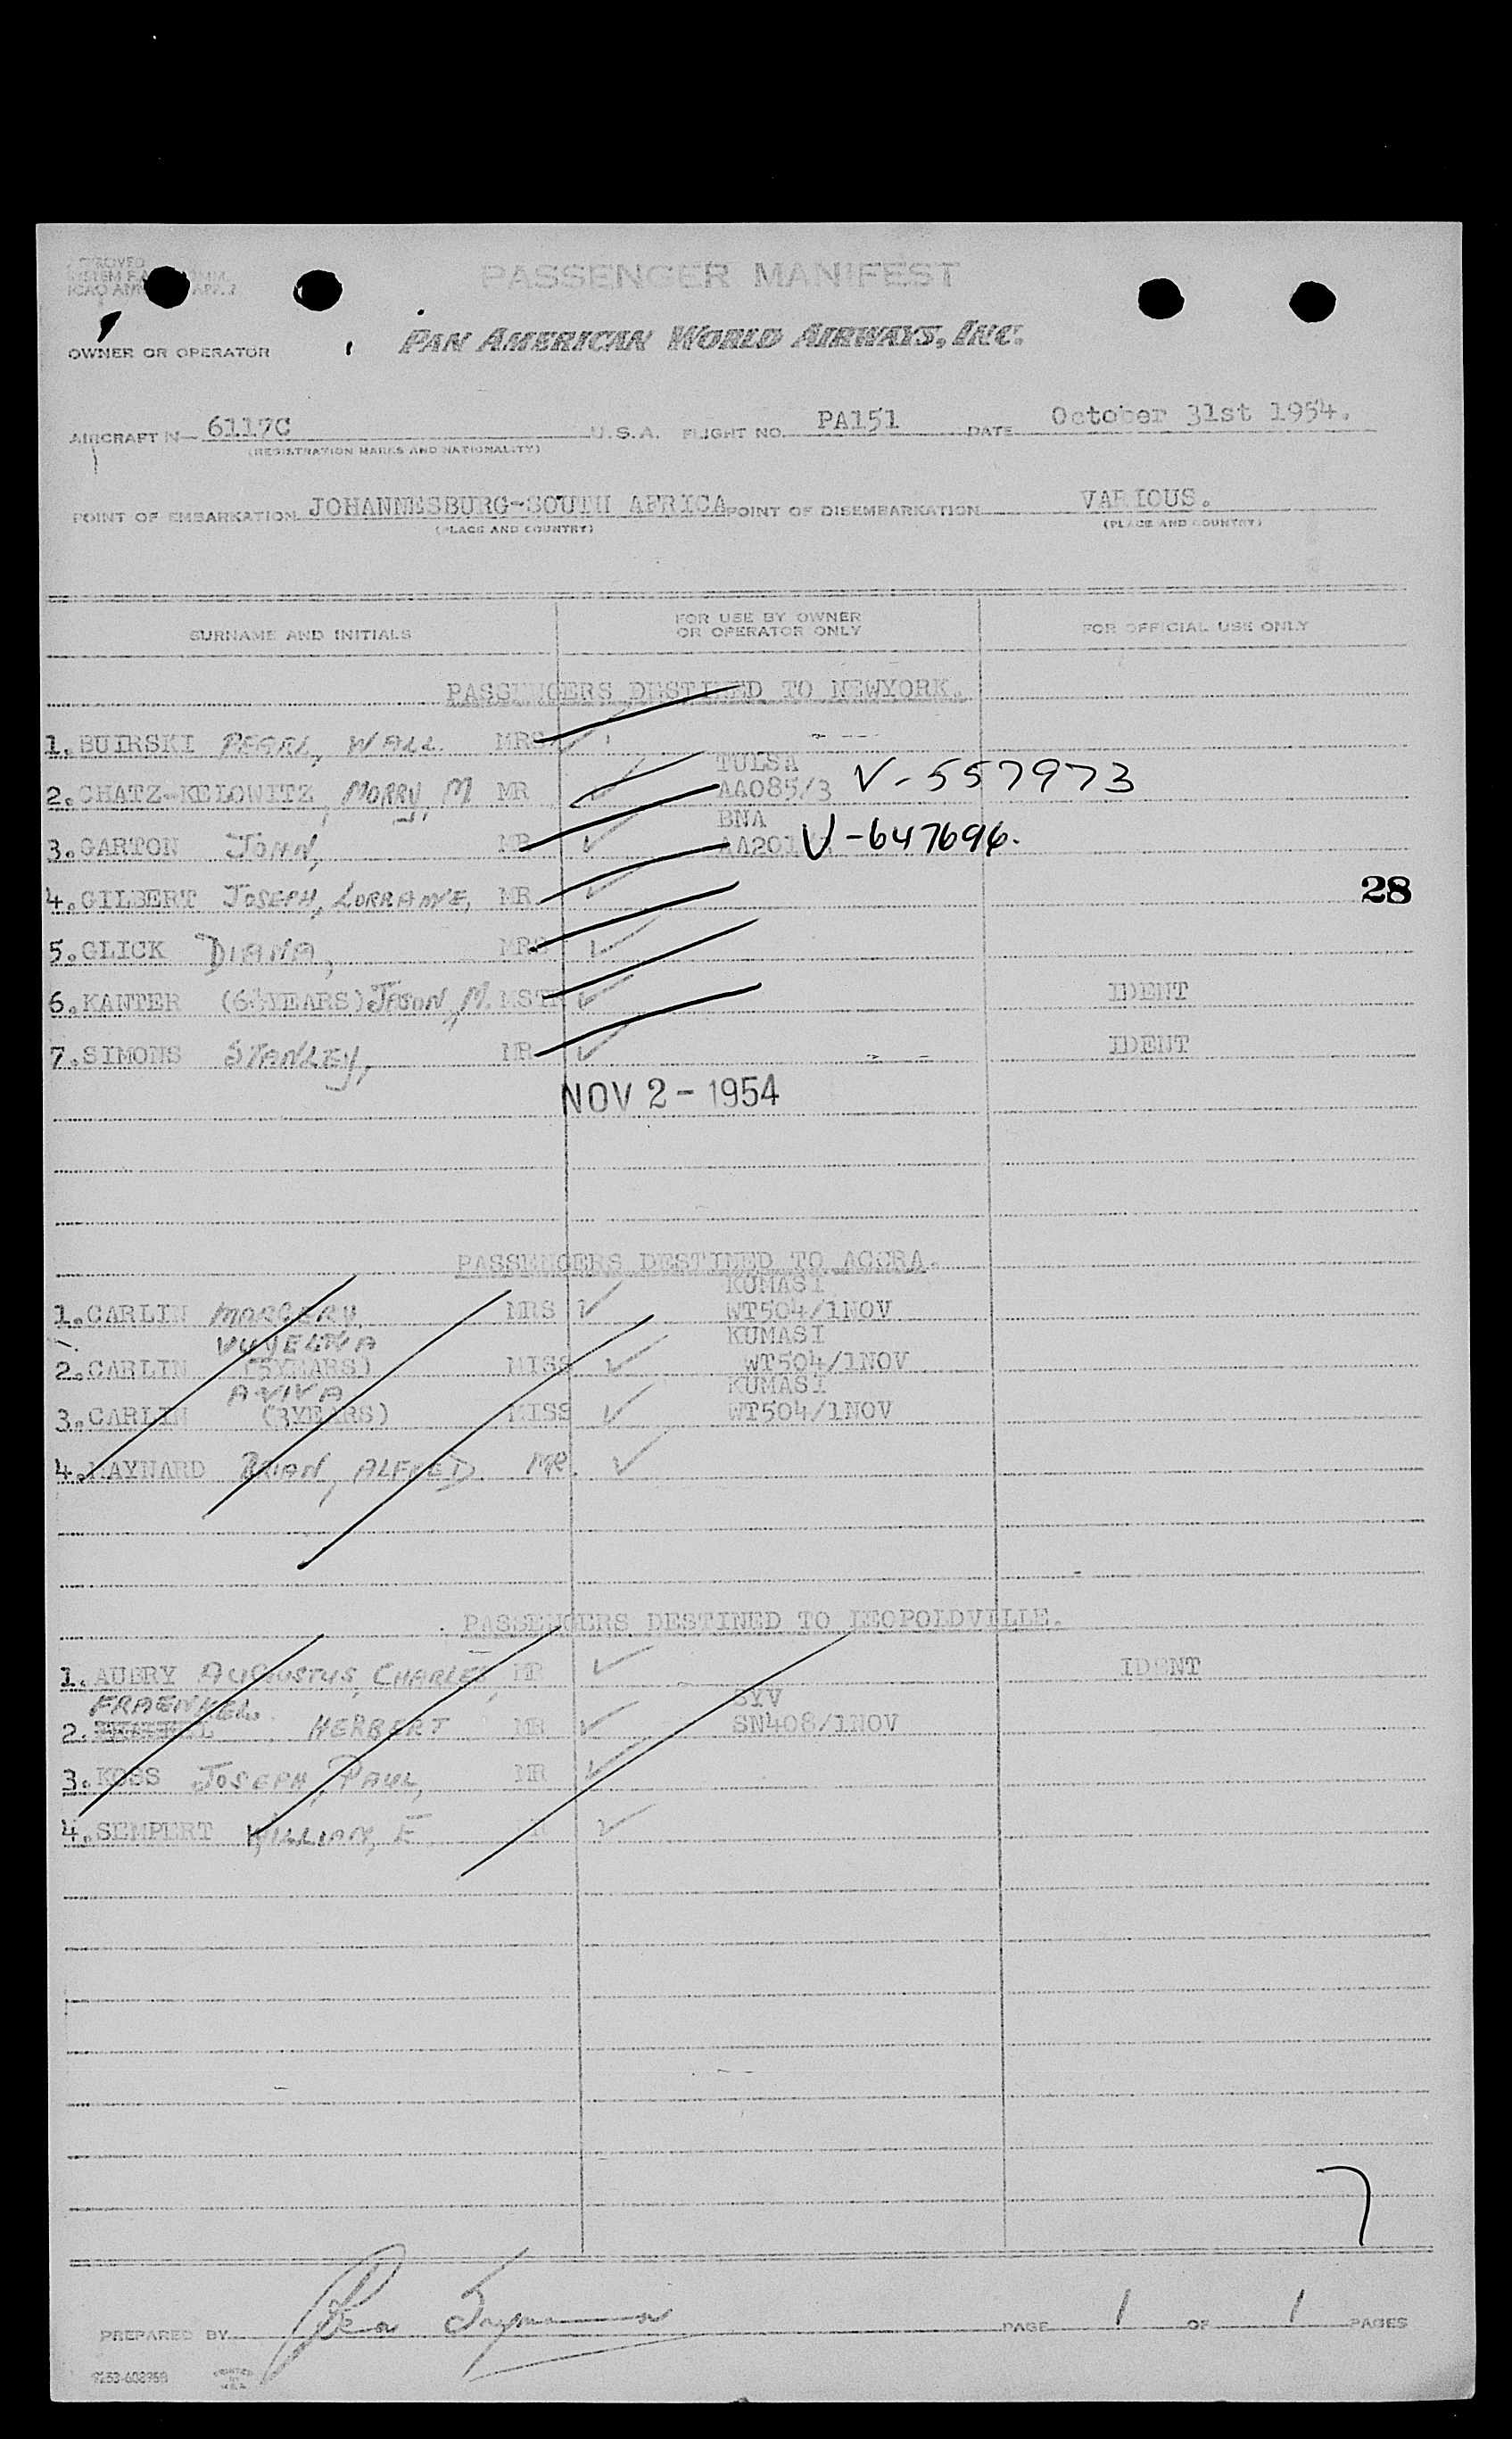 PASSENGER MANIFEST
OWNER OR OPERATOR PAN AMERICAN WORLD AIRWAYS, INC.
AIRCRAFT N- 6117C U.S.A. FLIGHT NO. PA151 DATE October 31st 1954.
(REGISTRATION MARKS AND NATIONALITY)
POINT OF EMBARKATION JOHANNESBURG-SOUTH AFRICA POINT OF DISEMBARKATION VARIOUS.
(PLACE AND COUNTRY) (PLACE AND COUNTRY)
SURNAME AND INITIALS FOR USE BY OWNER OR OPERATOR ONLY FOR OFFICIAL USE ONLY
PASSENGERS DESTINED TO NEWYORK.
1. BUIRSKI PEARL, WALL MRS
TULSA
2. CHATZ-KELOWITZ, MORRY, M. MR AA085/3 V-557973
BNA
3. GARTON JOHN, MR AA201 V-647696.
4. GILBERT JOSEPH, LORRAINE, MR
28
5. GLICK DIANA, MRS
6. KANTER (6½YEARS) JASON, M. MSTR IDENT
7. SIMONS STANLEY, MR IDENT
NOV 2 - 1954
PASSENGERS DESTINED TO ACCRA.
KUMASI
1. CARLIN MRS WT504/1NOV
KUMASI
2. CARLIN (5YEARS) MISS WT504/1NOV
AVIVA KUMASI
3. CARLIN (3YEARS) MISS WT504/1NOV
4. MAYNARD BRIAN, ALFRED MR.
PASSENGERS DESTINED TO LEOPOLDVILLE.
1. AUBRY AUGUSTUS, CHARLES, MR IDENT
FRAENKEL SYV
2. HERBERT MR SN408/1NOV
3. KOSS JOSEPH, PAUL, MR
4. SEMPERT WILLIAM, E
7
PREPARED BY PAGE 1 OF 1 PAGES